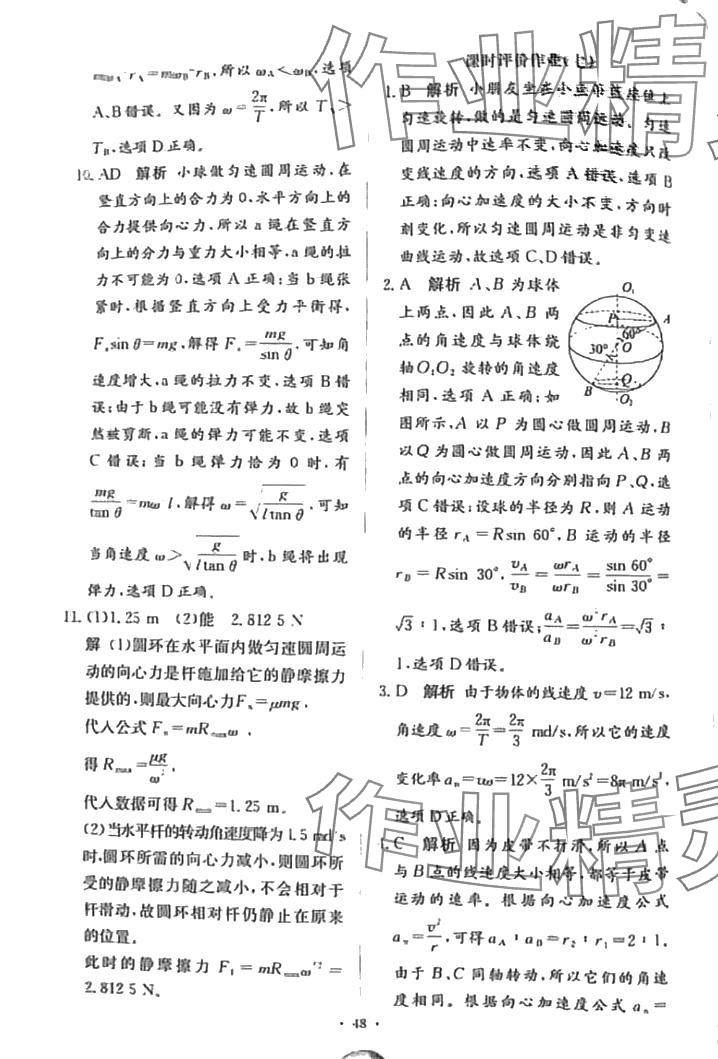 r_A=mω_B²r_B,所以 ω_A<ω_B,选项
A、B错误。又因为 ω=2π/T,所以 T_A>
T_B,选项D正确。
10. AD 解析 小球做匀速圆周运动,在
竖直方向上的合力为0,水平方向上的
合力提供向心力,所以a绳在竖直方
向上的分力与重力大小相等,a绳的拉
力不可能为0,选项A正确;当b绳张
紧时,根据竖直方向上受力平衡得,
F_a sin θ=mg,解得 F_a=mg/sin θ,可知角
速度增大,a绳的拉力不变,选项B错
误;由于b绳可能没有弹力,故b绳突
然被剪断,a绳的弹力可能不变,选项
C错误;当b绳弹力恰为0时,有
mg/tan θ=mω²l,解得 ω=√(g/(l tan θ)),可知
当角速度 ω>√(g/(l tan θ))时,b绳将出现
弹力,选项D正确。
11. (1)1.25 m (2)能 2.812 5 N
解 (1)圆环在水平面内做匀速圆周运
动的向心力是杆施加给它的静摩擦力
提供的,则最大向心力F_n=μmg。
代入公式 F_n=mR_maxω²,
得 R_max=μg/ω²,
代入数据可得 R_max=1.25 m。
(2)当水平杆的转动角速度降为1.5 rad/s
时,圆环所需的向心力减小,则圆环所
受的静摩擦力随之减小,不会相对于
杆滑动,故圆环相对杆仍静止在原来
的位置。
此时的静摩擦力 F_f=mR_maxω'²=
2.812 5 N。
课时评价作业(七)
1. B 解析 小朋友坐在小座椅座位上
匀速旋转,做的是匀速圆周运动。匀速
圆周运动中速率不变,向心加速度只改
变线速度的方向,选项A错误,选项B
正确;向心加速度的大小不变,方向时
刻变化,所以匀速圆周运动是非匀变速
曲线运动,故选项C、D错误。
2. A 解析 A、B为球体
上两点,因此A、B两
点的角速度与球体绕
轴O₁O₂旋转的角速度
相同,选项A正确;如
图所示,A以P为圆心做圆周运动,B
以Q为圆心做圆周运动,因此A、B两
点的向心加速度方向分别指向P、Q,选
项C错误;设球的半径为R,则A运动
的半径 r_A=Rsin 60°,B运动的半径
r_B=Rsin 30°,v_A/v_B=ωr_A/ωr_B=sin 60°/sin 30°=
√3∶1,选项B错误;a_A/a_B=ω²r_A/ω²r_B=√3∶
1,选项D错误。
O₁
P
A
60°
30°
O
B
Q
O₂
3. D 解析 由于物体的线速度 v=12 m/s,
角速度 ω=2π/T=2π/3 rad/s,所以它的速度
变化率 a_n=vω=12×2π/3 m/s²=8π m/s²,
选项D正确。
4. C 解析 因为皮带不打滑,所以A点
与B点的线速度大小相等,都等于皮带
运动的速率。根据向心加速度公式
a_n=v²/r,可得 a_A∶a_B=r₂∶r₁=2∶1。
由于B、C同轴转动,所以它们的角速
度相同。根据向心加速度公式 a_n=
· 48 ·
作业精灵
作业精灵